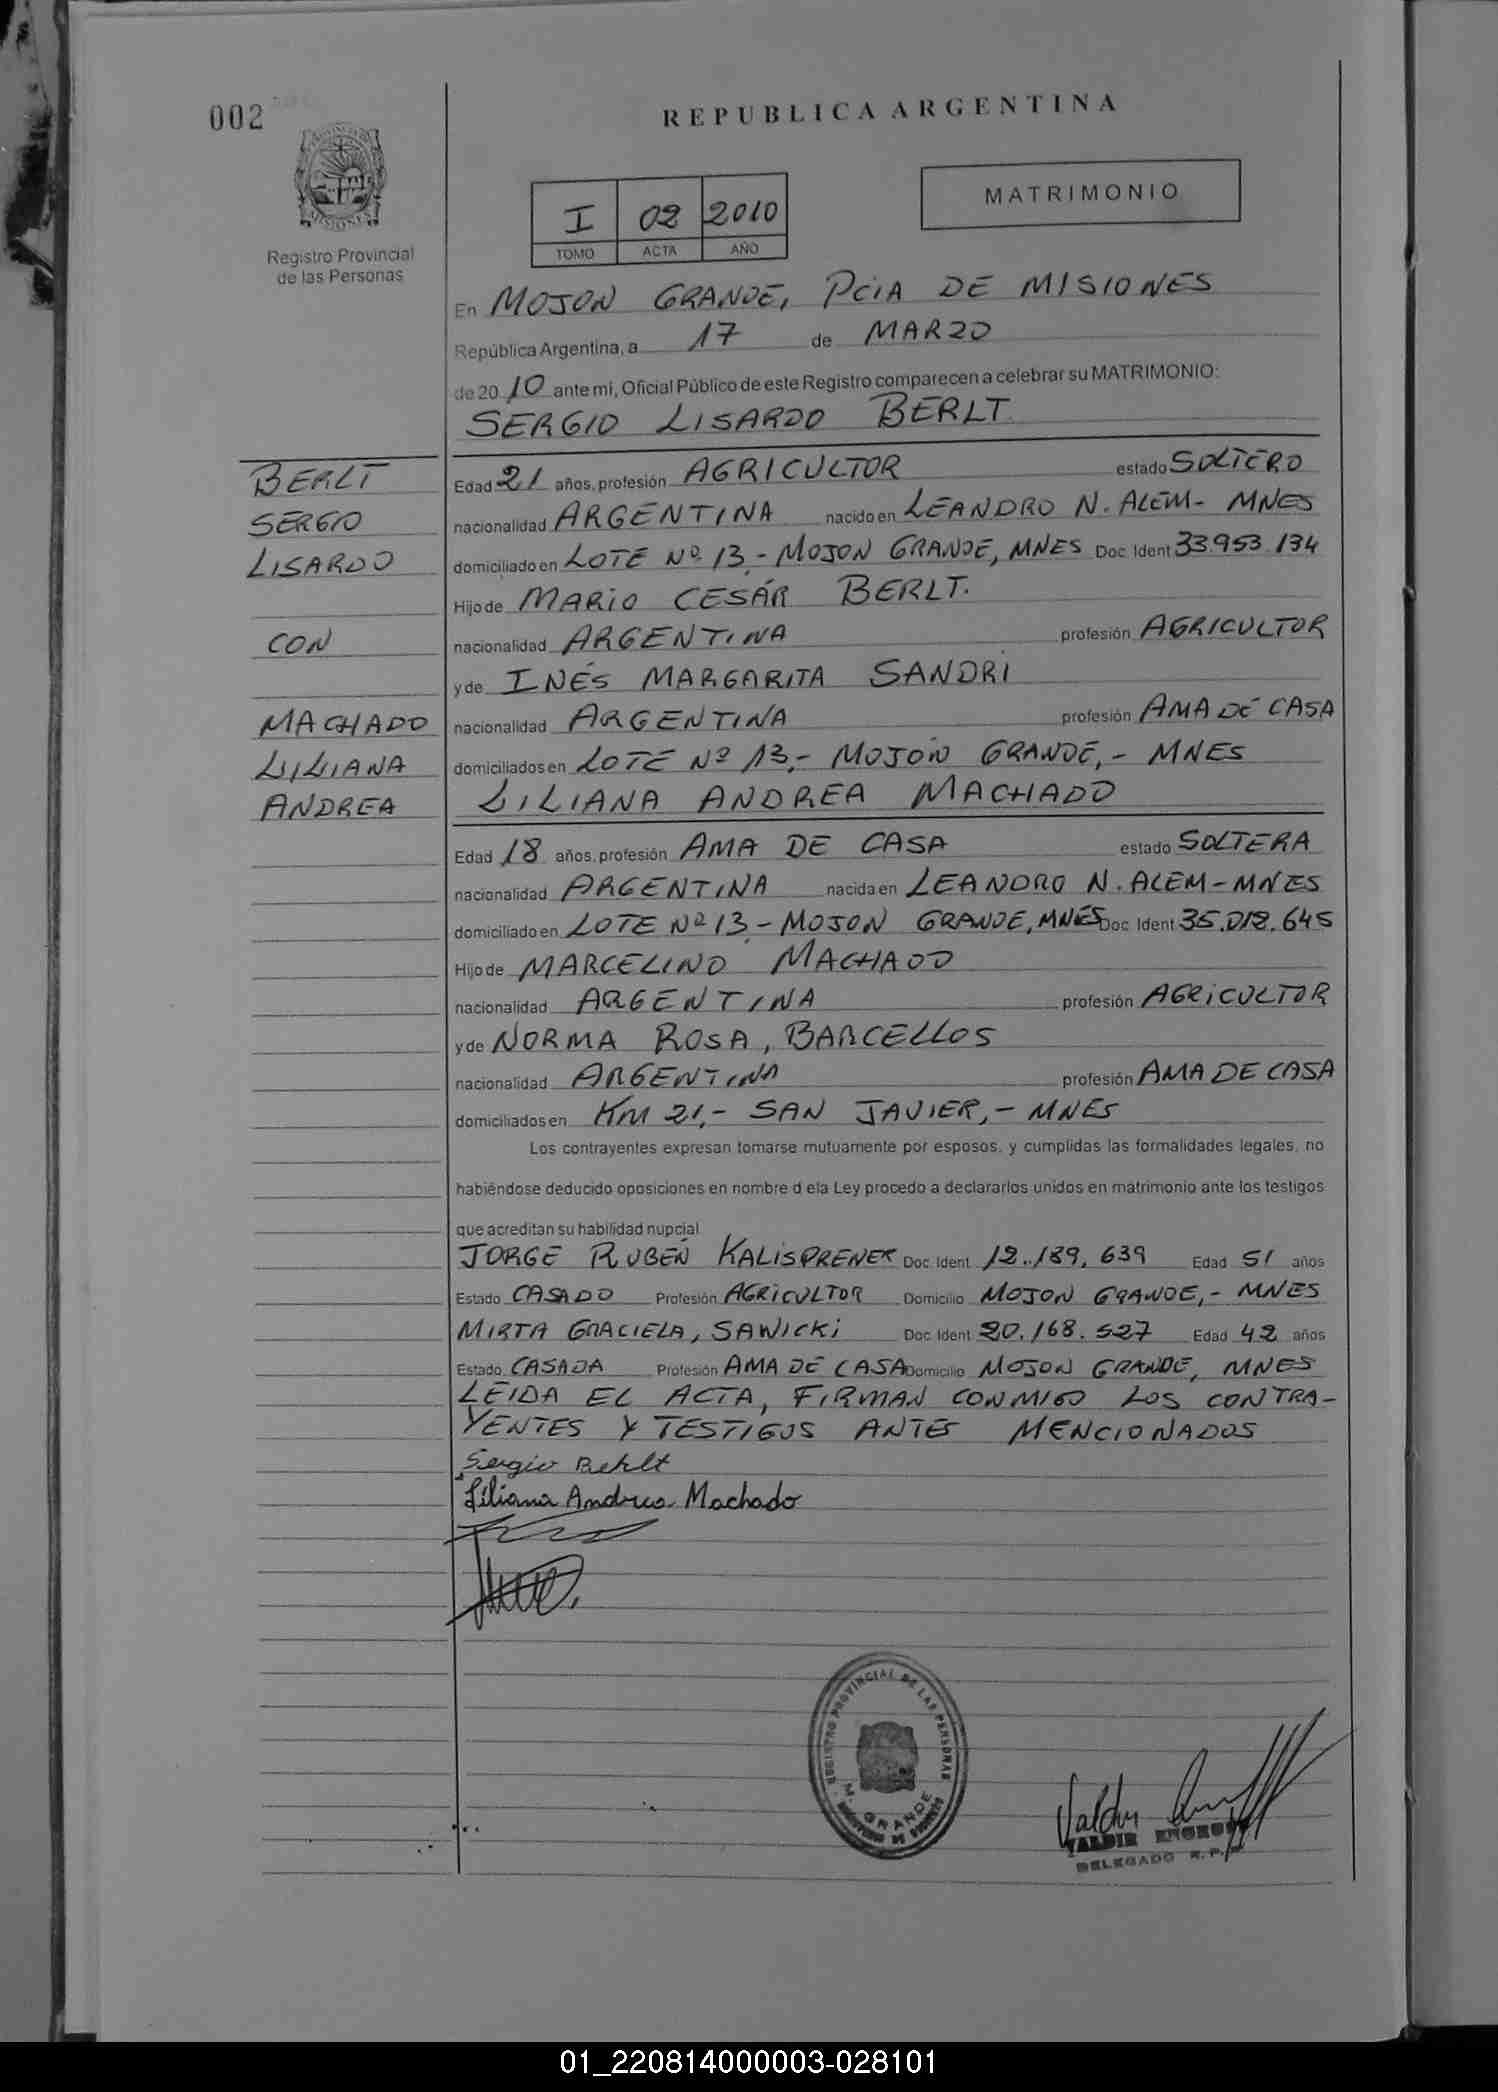 002
REPUBLICA ARGENTINA
MATRIMONIO
I 02 2010
TOMO ACTA AÑO
Registro Provincial
de las Personas
En MOJON GRANDE, PCIA DE MISIONES
República Argentina, a 17 de MARZO
de 20 10 ante mi, Oficial Público de este Registro comparecen a celebrar su MATRIMONIO:
SERGIO LISARDO BERLT
BERLT
SERGIO
LISARDO
CON
MACHADO
LILIANA
ANDREA
Edad 21 años, profesión AGRICULTOR estado SOLTERO
nacionalidad ARGENTINA nacido en LEANDRO N. ALEM- MNES
domiciliado en LOTE Nº 13 - MOJON GRANDE, MNES Doc. Ident 33.953.134
Hijo de MARIO CESÁR BERLT.
nacionalidad ARGENTINA profesión AGRICULTOR
y de INÉS MARGARITA SANDRI
nacionalidad ARGENTINA profesión AMA DE CASA
domiciliados en LOTE Nº 13,- MOJON GRANDE,- MNES
LILIANA ANDREA MACHADO
Edad 18 años, profesión AMA DE CASA estado SOLTERA
nacionalidad ARGENTINA nacida en LEANDRO N. ALEM-MNES
domiciliado en LOTE Nº 13 - MOJON GRANDE, MNES Doc. Ident 35.012.645
Hijo de MARCELINO MACHADO
nacionalidad ARGENTINA profesión AGRICULTOR
y de NORMA ROSA, BARCELLOS
nacionalidad ARGENTINA profesión AMA DE CASA
domiciliados en KM 21,- SAN JAVIER,- MNES
Los contrayentes expresan tomarse mutuamente por esposos, y cumplidas las formalidades legales, no
habiéndose deducido oposiciones en nombre d ela Ley procedo a declararlos unidos en matrimonio ante los testigos
que acreditan su habilidad nupcial
JORGE RUBEN KALISPRENER Doc. Ident 12.189.639 Edad 51 años
Estado CASADO Profesión AGRICULTOR Domicilio MOJON GRANDE,- MNES
MIRTA GRACIELA, SAWICKI Doc. Ident 20.168.527 Edad 42 años
Estado CASADA Profesión AMA DE CASA Domicilio MOJON GRANDE, MNES
LEIDA EL ACTA, FIRMAN CONMIGO LOS CONTRA-
YENTES Y TESTIGOS ANTES MENCIONADOS
Sergio Berlt
Liliana Andrea Machado
REGISTRO PROVINCIAL DE LAS PERSONAS
M. GRANDE
Valdir
VALDIR
DELEGADO R.P.
01_220814000003-028101